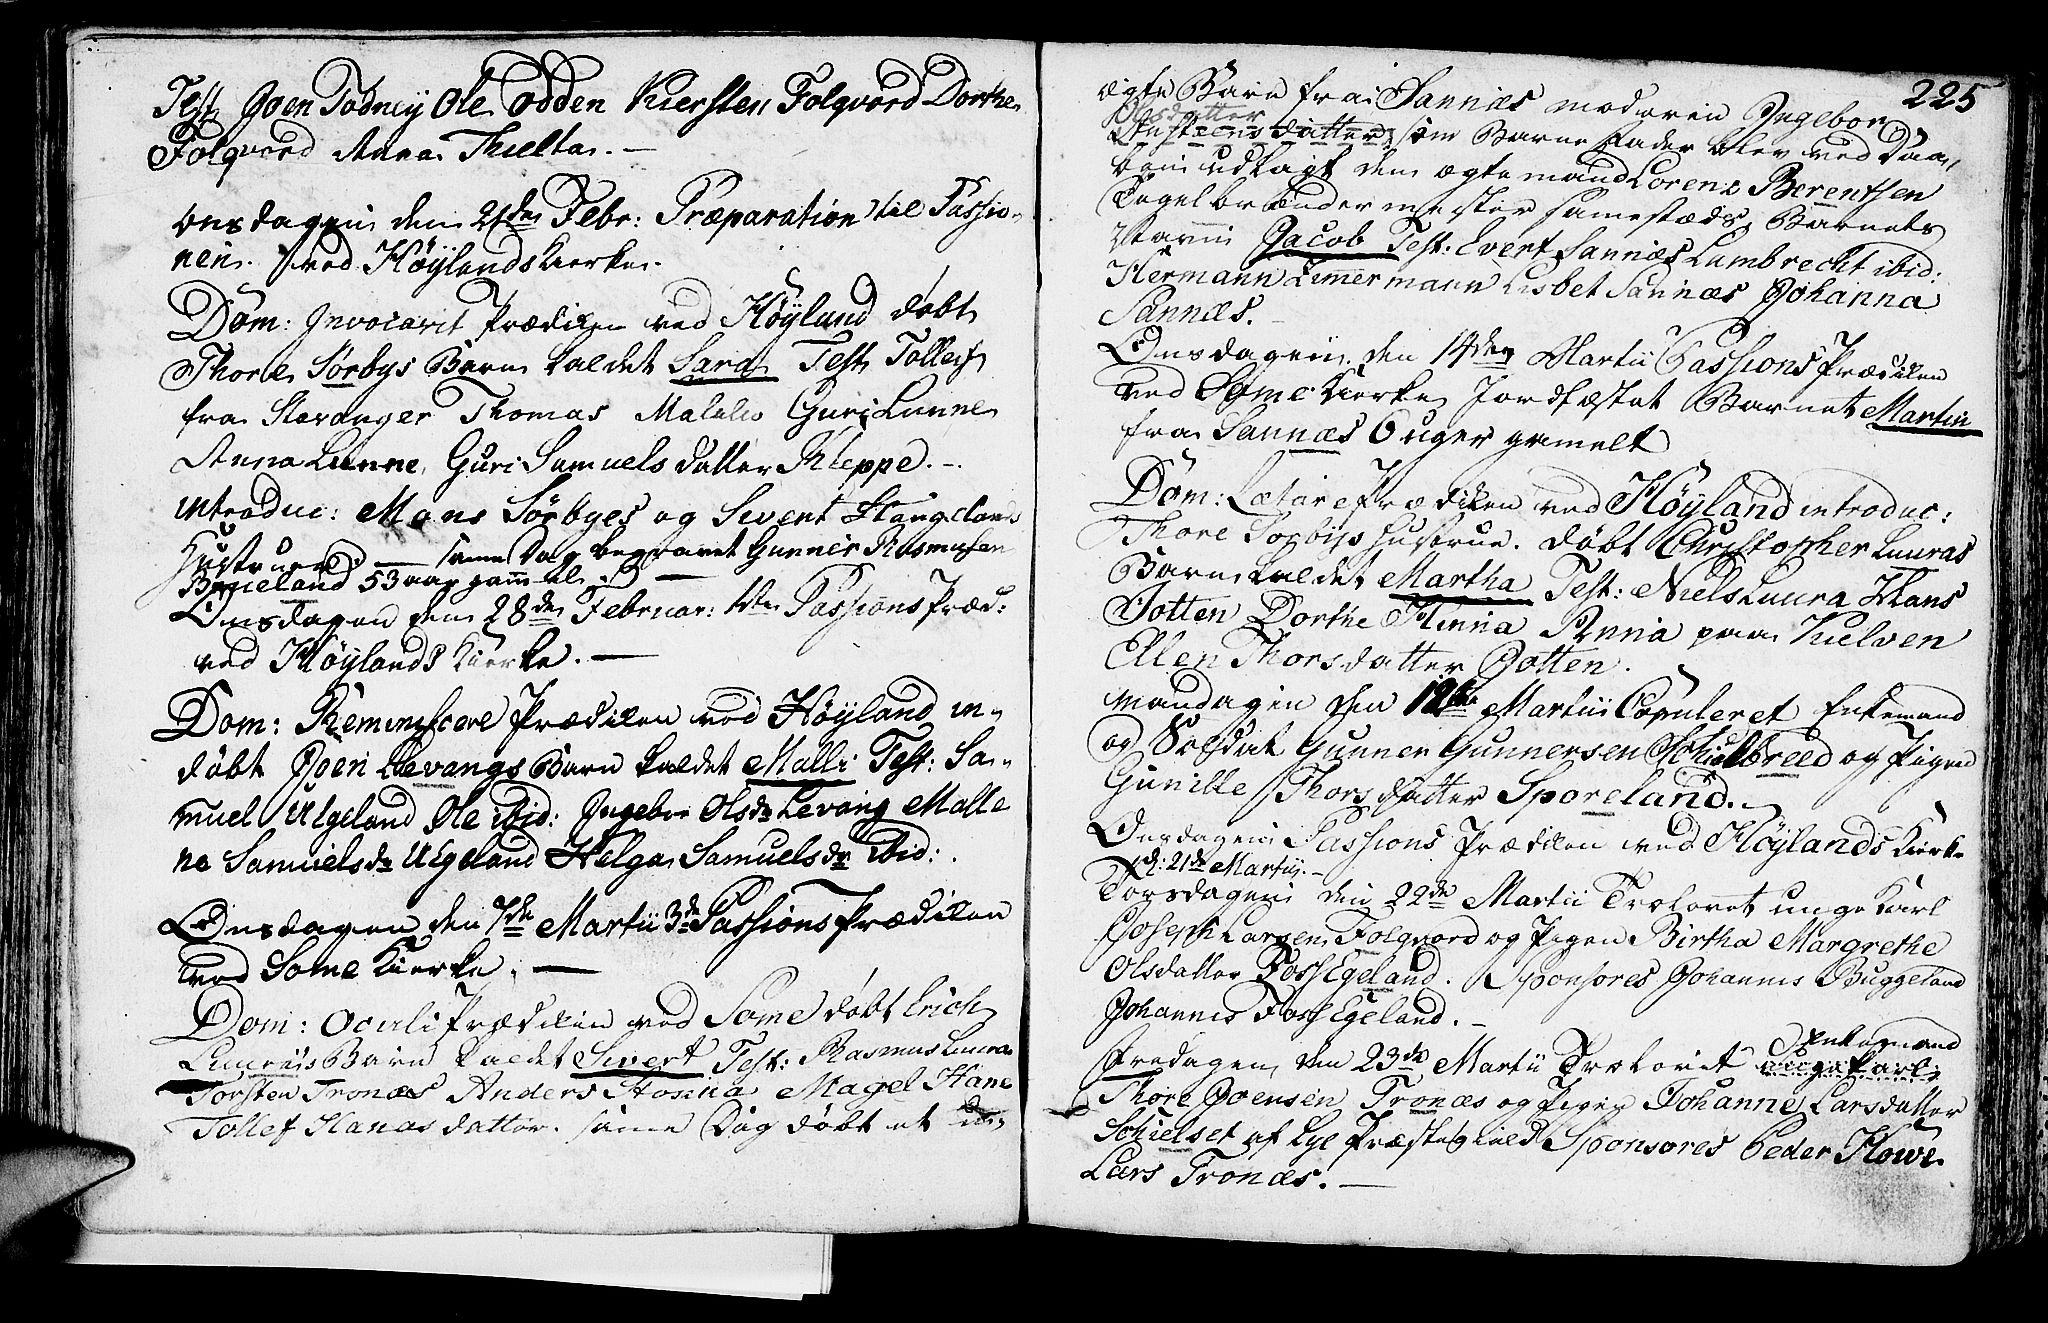 Test Joen Todney Ole Odden Kiersten Folqvord Dorthe
Folqvord Anna Thielta. –
Onsdagen den 21de Febr: Præparation til Passio-
nen. ved Höylands Kierke.
Dom: Invocavit Prædiken ved Höyland döbt
Thore Sörbys Barn kaldet Sara Test Tollef
fra Stavanger Thomas Malele Guri Lunne
Anna Lunne, Guri Samuelsdatter Kleppe. –
introduc: Mons Sörbyes og Sivert Haugelands
Hustruer. — samme Dag begravet Gunner Rasmusen
Brueland 53 aar gammel. —
Onsdagen den 28de Februar: 1ste Passions Præd:
ved Höylands Kierke. —
Dom: Reminiscere Prædiken ved Höyland in-
döbt Joen Levangs Barn kaldet Malli Test: Sa-
muel Ulgeland Ole ibid: Ingebor Olsdr Levang Malle
ne Samuelsdr Ulgeland Helga Samuelsdr ibid:
Onsdagen den 7de Martii 3de Passions Prædiken
ved Some Kierke. —
Dom: Oculi Prædiken ved Some döbt Erich
Lunes Barn kaldet Sivert Test: Rasmus Luras
Torsten Tronæs Anders Stonna Magel Hane
Tollef Hanas datter. samme Dag döbt et u-
225
ægte Barn fra Sannæs moderen Ingebor
Olsdatter
som Barne Fader blev ved Daa-
ben udlagt den ægte mand Lorens Berentsen
Tegelbrænder mester sammestæds, Barnets
Navn Jacob Test: Evert Sannæs Lambrecht ibid:
Hermann Zimermann Lisbet Sannæs Johanna
Sannæs. –
Onsdagen den 14den Martii Passions Prædiken
ved Some Kierke Jordfæstet Barnet Martin
fra Sannæs 6 uger gamelt
Dom: Lætare Prædiken ved Höyland introduc:
Thore Sorbys Hustrue. döbt Christopher Luras
Barn kaldet Martha Test: Niels Luura Hans
Jotten Dorthe Hinna Anna paa Kielven
Ellen Thorsdatter Jotten.
Mandagen den 19de Martii Copuleret Enkemand
og Soldat Gunner Gunnersen Schiolbreed og Pigen
Gunille Thorsdatter Sporeland. –
Onsdagen Passions Prædiken ved Höylands Kierke
d: 21de Martii. –
Torsdagen den 22de Martii Trolovet unge Karl
Joseph Larsen Folqvord og Pigen Birtha Margrethe
Olsdatter Foss Egeland. Sponsores Johannes Buggeland
Johannes Foss Egeland. –
Enkemand
Fredagen den 23de Martii Trolovet unge Karl
Thore Joensen Tronæs og Pigen Johanne Larsdatter
Schielset af Lye Præstegield Sponsores Peder Howe
Lars Tronæs. —